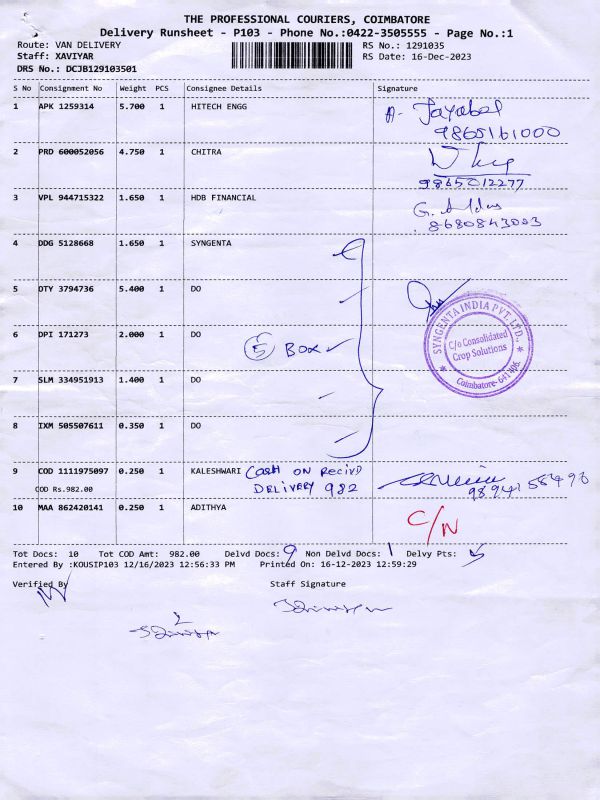 THE PROFESSIONAL COURIERS, COIMBATORE
Delivery Runsheet - P103 - Phone No.:0422-3505555 - Page No.:1
Route: VAN DELIVERY RS No.: 1291035
Staff: XAVIYAR RS Date: 16-Dec-2023
DRS No.: DCJB129103501
S No Consignment No Weight PCS Consignee Details Signature
1 APK 1259314 5.700 1 HITECH ENGG A- Jayabal
9865161000
2 PRD 600052056 4.750 1 CHITRA
9865012277
3 VPL 944715322 1.650 1 HDB FINANCIAL G.
8680843003
4 DDG 5128668 1.650 1 SYNGENTA
5 DTY 3794736 5.400 1 DO
SYNGENTA INDIA PVT. LTD.,
C/o Consolidated
Crop Solutions
Coimbatore-641 406.
6 DPI 171273 2.000 1 DO
5 BOX
7 SLM 334951913 1.400 1 DO
8 IXM 505507611 0.350 1 DO
9 COD 1111975097 0.250 1 KALESHWARI Cash ON RECIVD
COD Rs.982.00 DELIVERY 982
10 MAA 862420141 0.250 1 ADITHYA C/N
Tot Docs: 10 Tot COD Amt: 982.00 Delvd Docs: 9 Non Delvd Docs: 1 Delvy Pts: 5
Entered By :KOUSIP103 12/16/2023 12:56:33 PM Printed On: 16-12-2023 12:59:29
Verified By Staff Signature